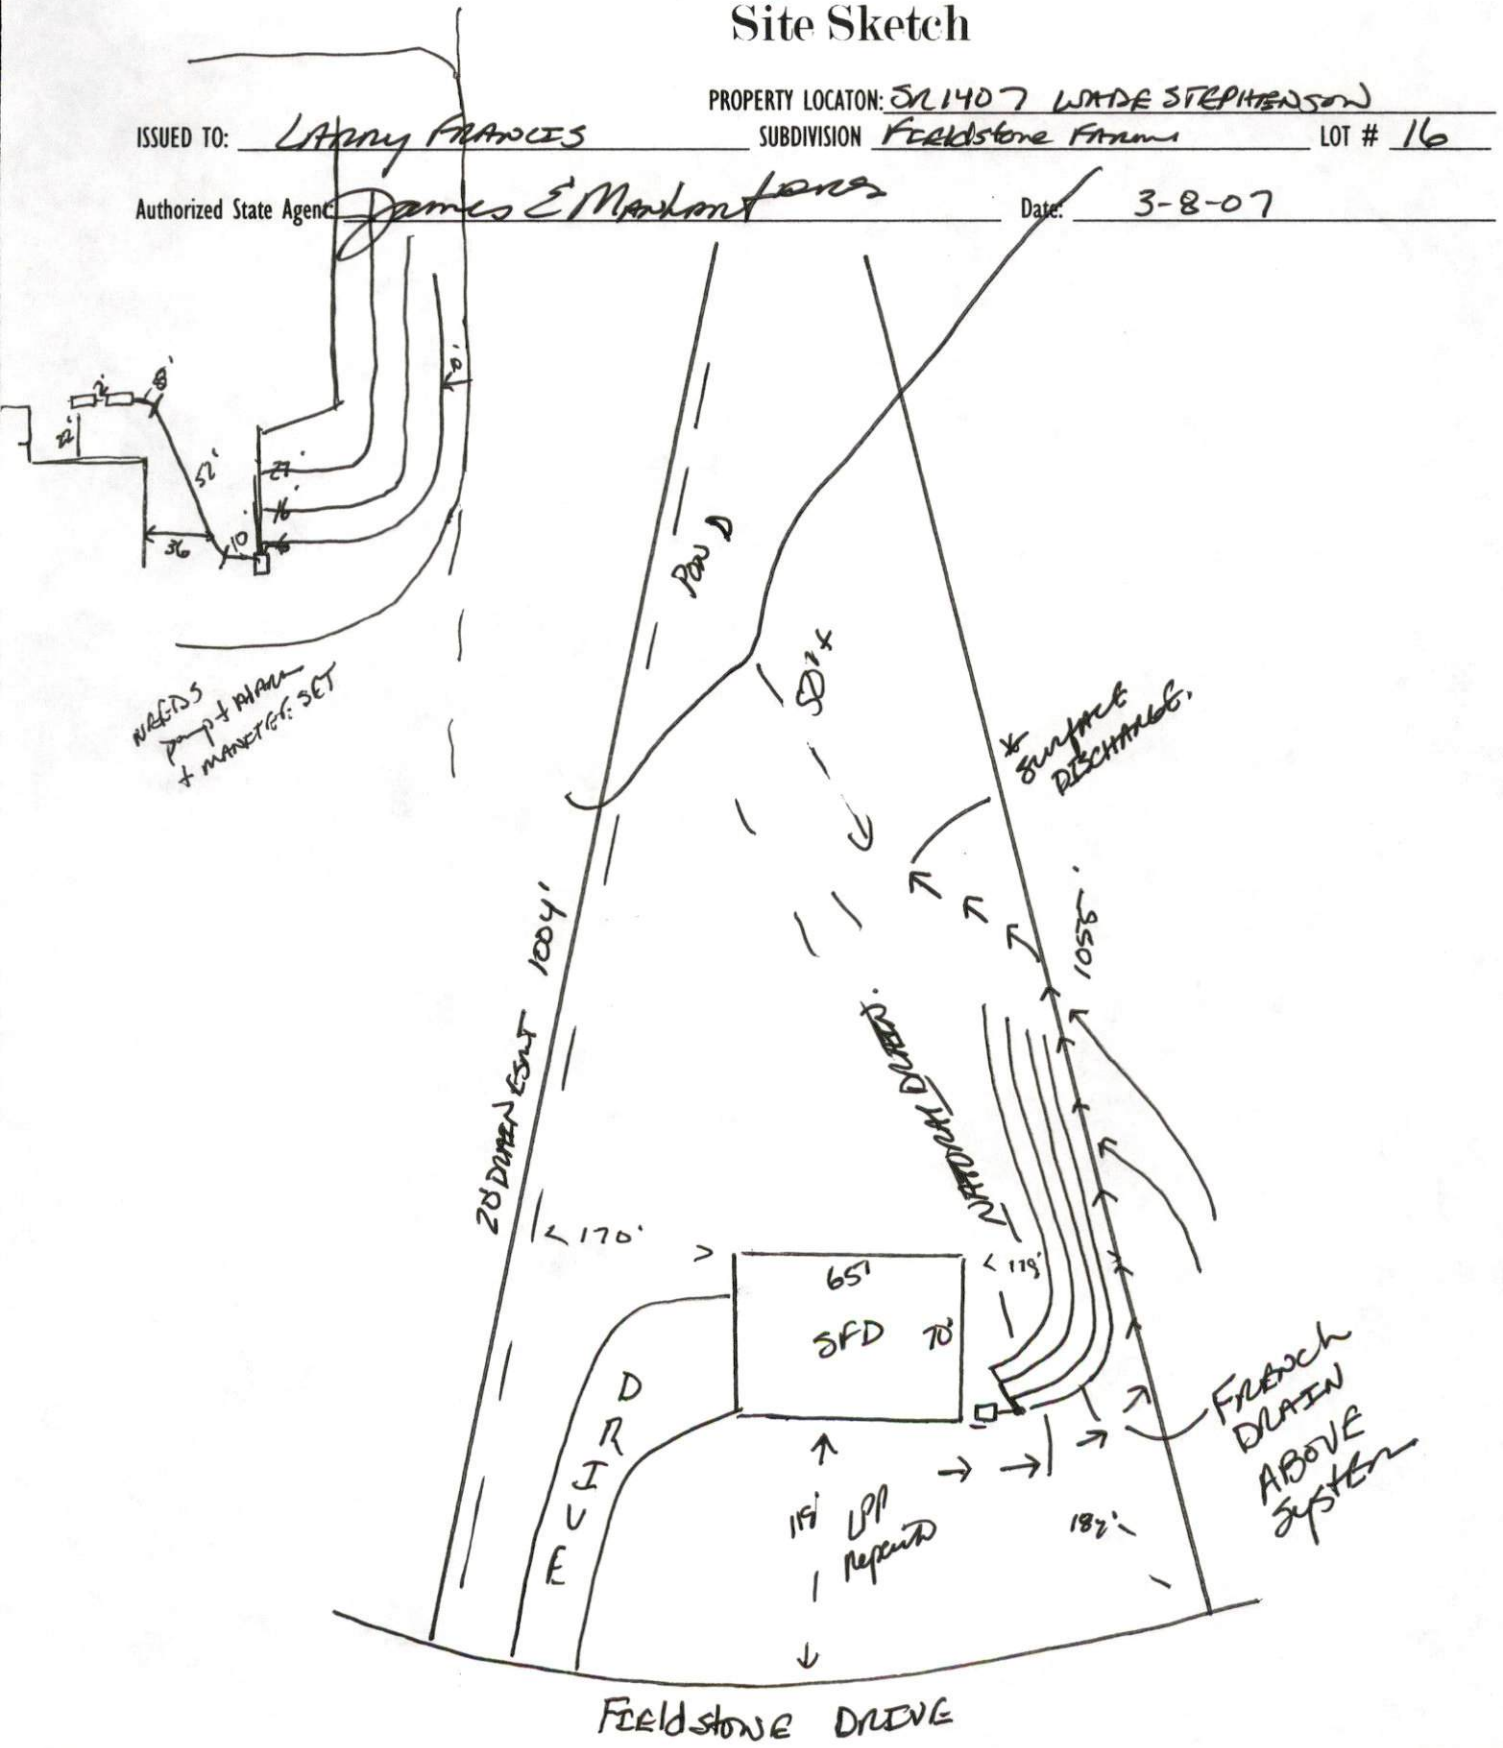 Site Sketch
PROPERTY LOCATON: SR1407 WADE STEPHENSON
ISSUED TO: LARRY FRANCIS SUBDIVISION Fieldstone FARMS LOT # 16
Authorized State Agent: James E Manhart Date: 3-8-07
10'
2' 8'
22'
52'
27'
16'
6
36 10'
NEEDS
pump + Alarm
+ MANIFOLD SET
POND
*
SURFACE
DISCHARGE.
1004'
1055'
20' DRAIN ESMT
NATURAL DRAIN.
< 170' >
65'
SFD 70'
< 119'
DRIVE
FRENCH
DRAIN
ABOVE
SYSTEM
118'
LPP
Repair
Fieldstone DRIVE